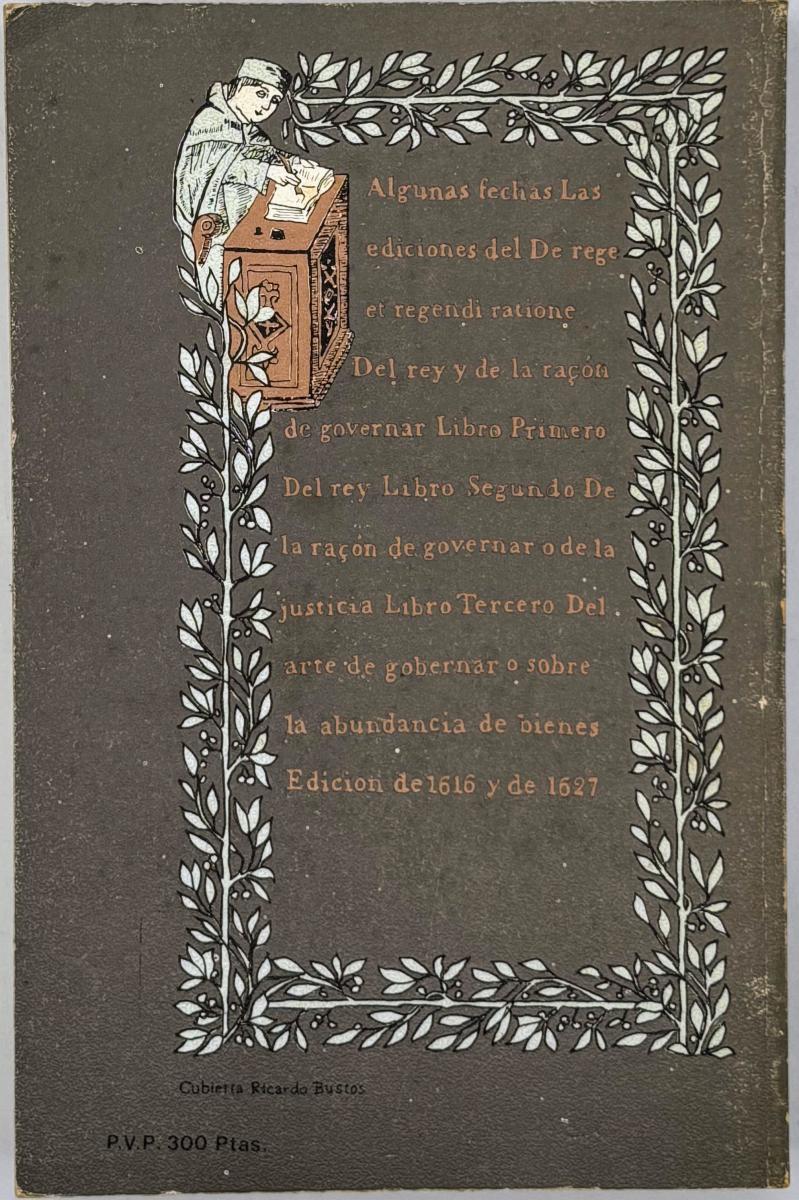 Algunas fechas Las
ediciones del De rege
et regendi ratione
Del rey y de la raçón
de governar Libro Primero
Del rey Libro Segundo De
la raçón de governar o de la
justicia Libro Tercero Del
arte de gobernar o sobre
la abundancia de bienes
Edicion de 1616 y de 1627
Cubierta Ricardo Bustos
P.V.P. 300 Ptas.